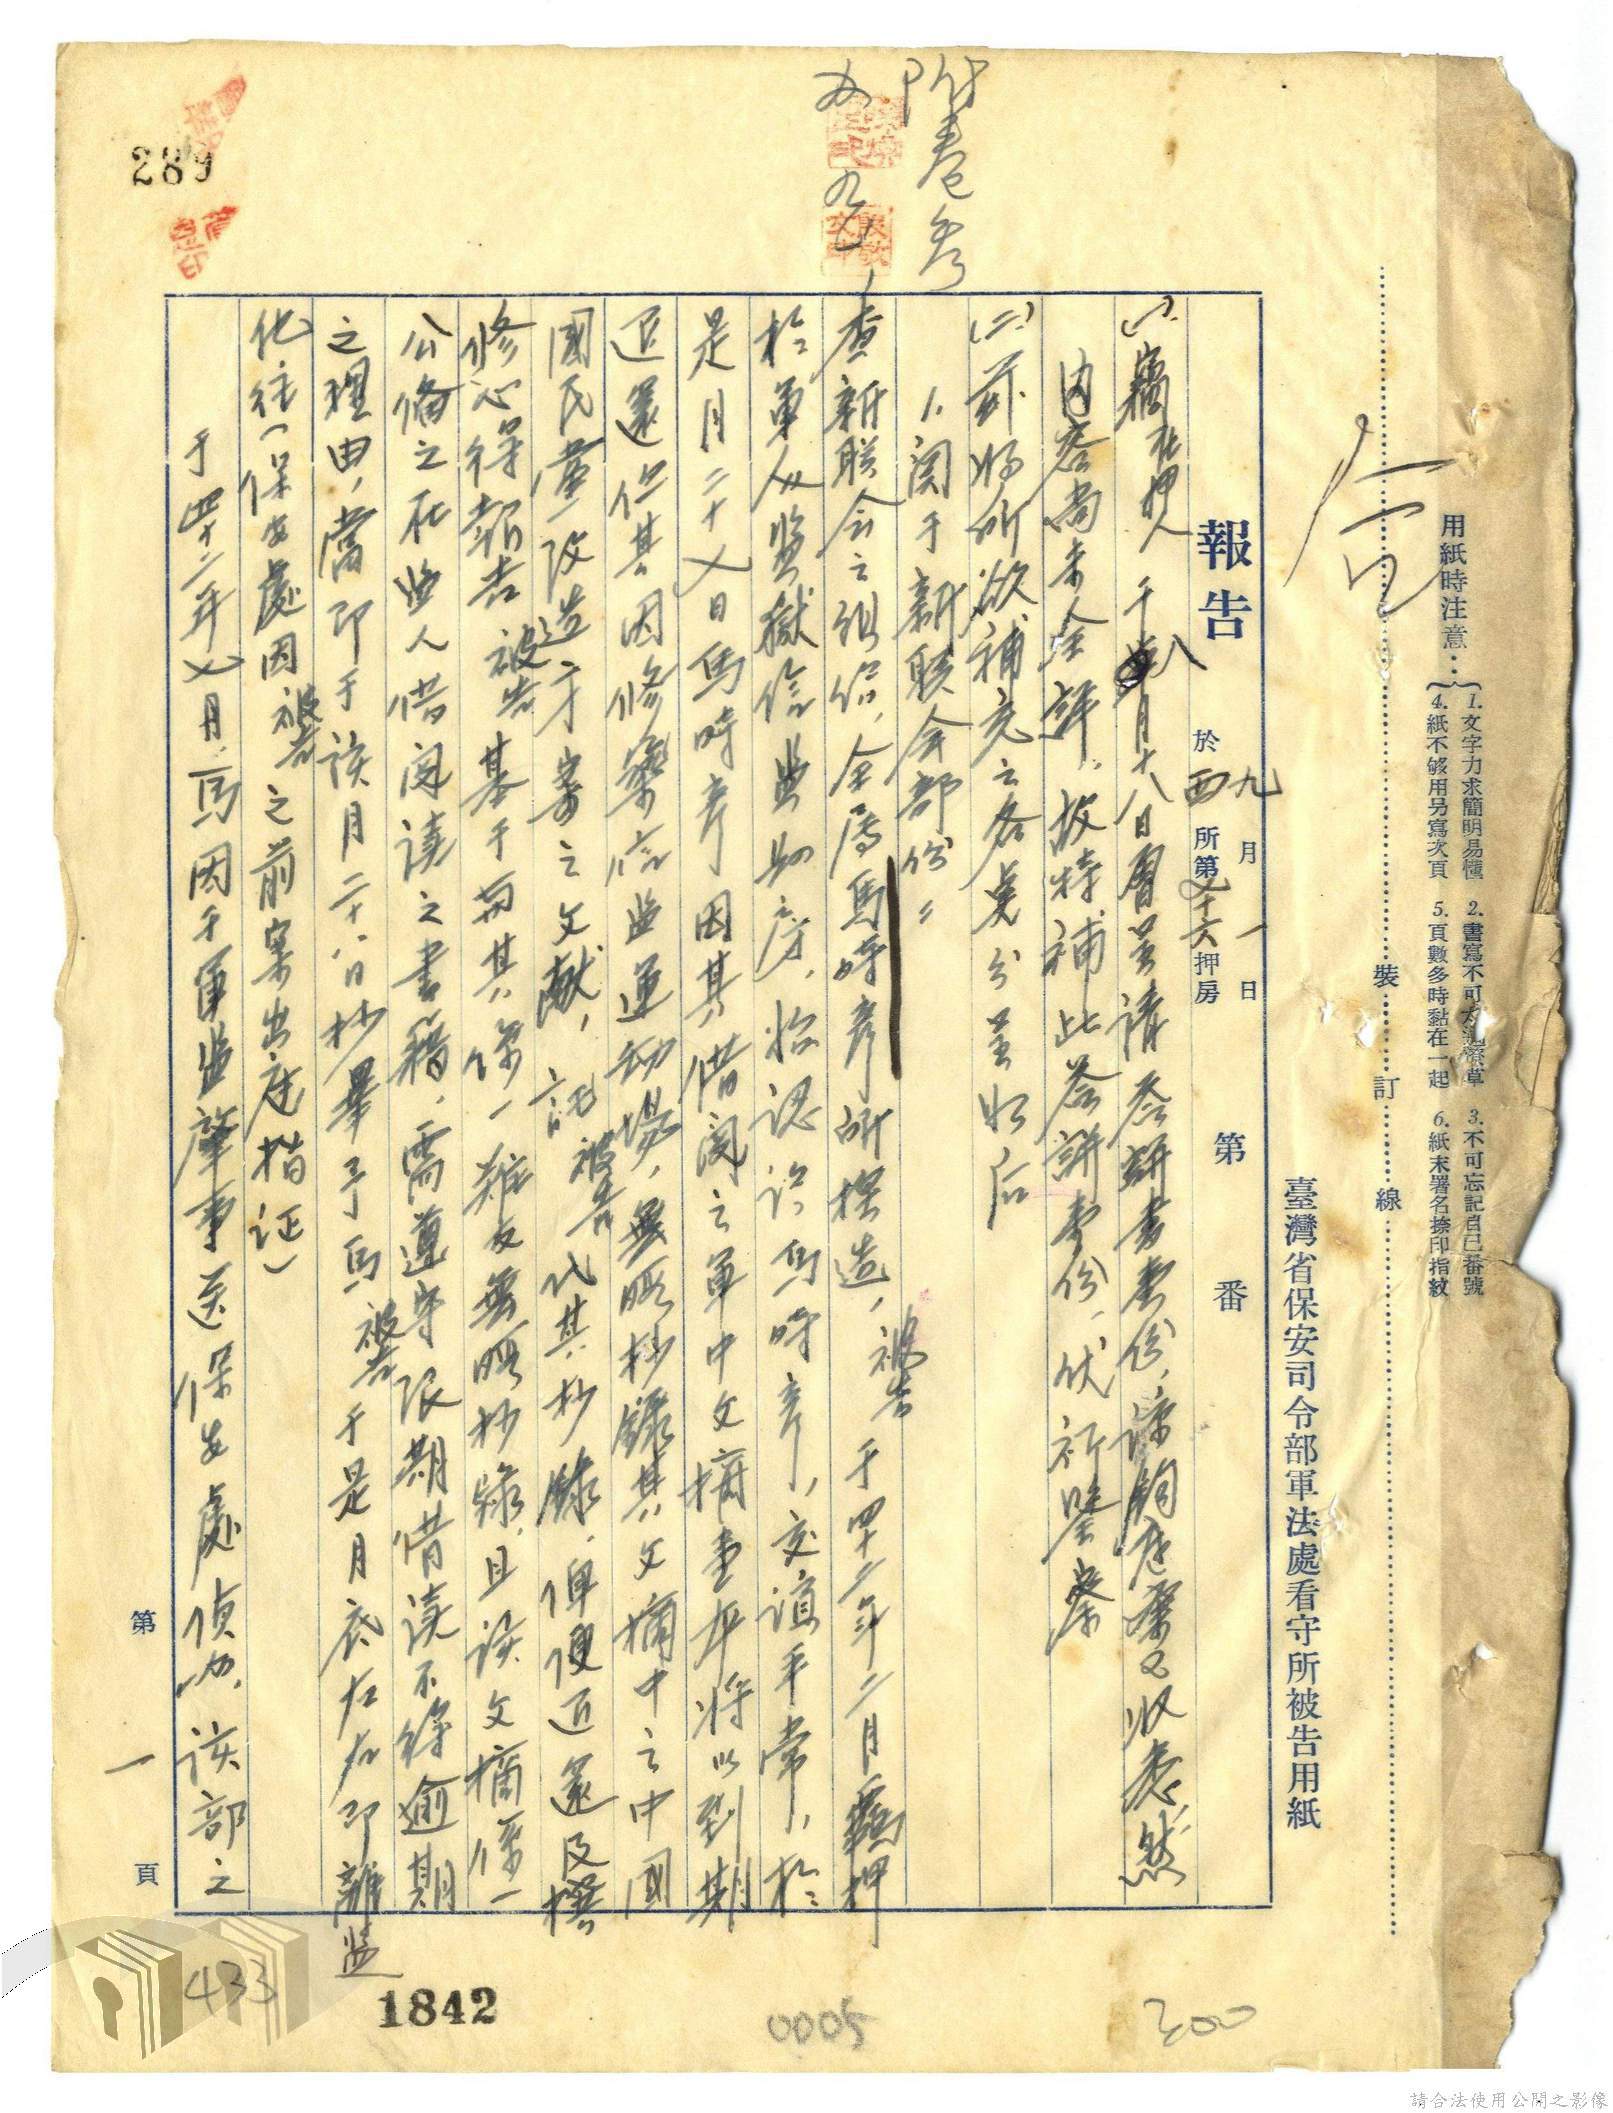 用紙時注意：
1.文字力求簡明易懂 2.書寫不可太潦草 3.不可忘記自己番號
4.紙不够用另寫次頁 5.頁數多時黏在一起 6.紙末署名捺印指紋
裝 訂 線
臺灣省保安司令部軍法處看守所被告用紙
報告 九月一日 於西所第七十六押房 第 番
(一)竊在押人于八月十八日曾呈請答辯書壹份，諒鈞庭業已收悉，然
內容尚未全詳，故特補此答辯書份，伏祈鑒察
(二)茲將所欲補充之各點分呈如后
1、関于新联会部份：
查新联会之組织，全馮馬時彥所揑造，被告于四十二年二月羈押
於軍人監獄信監助房，始認识馬時彥，交誼平常，於
是月二十七日馬時彥因其借閱之軍中文摘壹本将以到期
退還但其因修築信監運動場，無暇抄錄其文摘中之中國
國民党改造方案之文献，託被告代其抄錄，俾便送還及撰
修心得報告被告基于與其係一难友無暇抄録，且该文摘係一
公俻之在监人借阅读之書籍，需遵守限期借读不得逾期
之理由，當即于该月二十八日抄畢予馬被告于是月底左右即離監
他往(保安處因被告之前案出庭指证)
于四十二年七月，馬因于軍监肇事送保安處偵办，该部之
第一頁
附卷参
289
433
1842
0005
300
請合法使用公開之影像